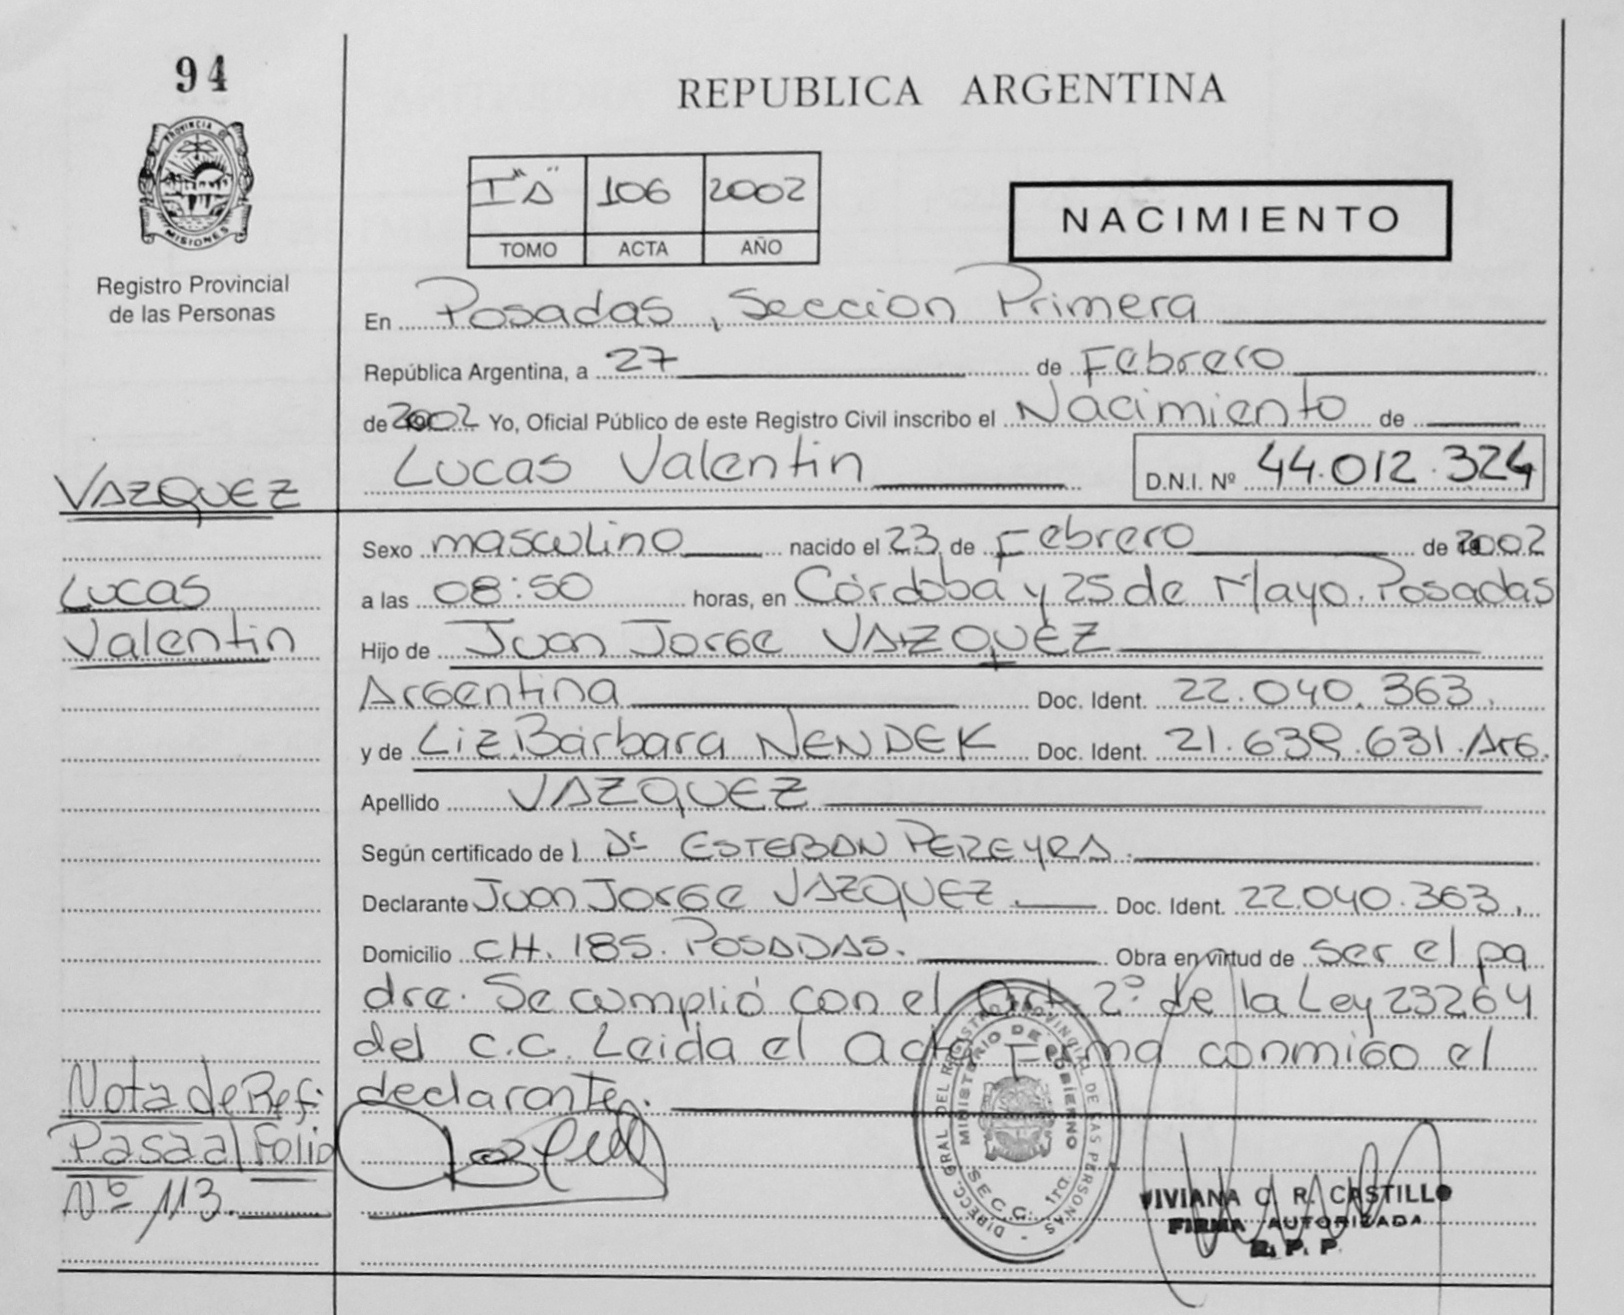 94
PROVINCIA D
MISIONES
Registro Provincial
de las Personas
REPUBLICA ARGENTINA
I "A" 106 2002
TOMO ACTA AÑO
NACIMIENTO
En Posadas, Sección Primera
República Argentina, a 27 de Febrero
de 2002 Yo, Oficial Público de este Registro Civil inscribo el Nacimiento de
Lucas Valentin D.N.I. Nº 44.012.324
VAZQUEZ
Lucas
Valentin
Sexo masculino nacido el 23 de Febrero de 2002
a las 08:50 horas, en Córdoba y 25 de Mayo. Posadas
Hijo de Juan Jorge VAZQUEZ
Argentina Doc. Ident. 22.040.363.
y de Liz Bárbara NENDEK Doc. Ident. 21.639.631. Arg.
Apellido VAZQUEZ
Según certificado de l Dr ESTEBAN PEREYRA.
Declarante Juan Jorge VAZQUEZ. Doc. Ident. 22.040.363.
Domicilio CH. 185. POSADAS. Obra en virtud de ser el pa
dre. Se cumplió con el Art. 2º de la Ley 23264
del c.c. Leida el acta Firma conmigo el
declarante.
Nota de Ref:
Pasa al Folio
Nº 113.
DIRECC. GRAL DEL REGISTRO PROVINCIAL DE LAS PERSONAS
MINISTERIO DE GOBIERNO
SECC. 1ra
VIVIANA C. R. CASTILLO
FIRMA AUTORIZADA
R. P. P.